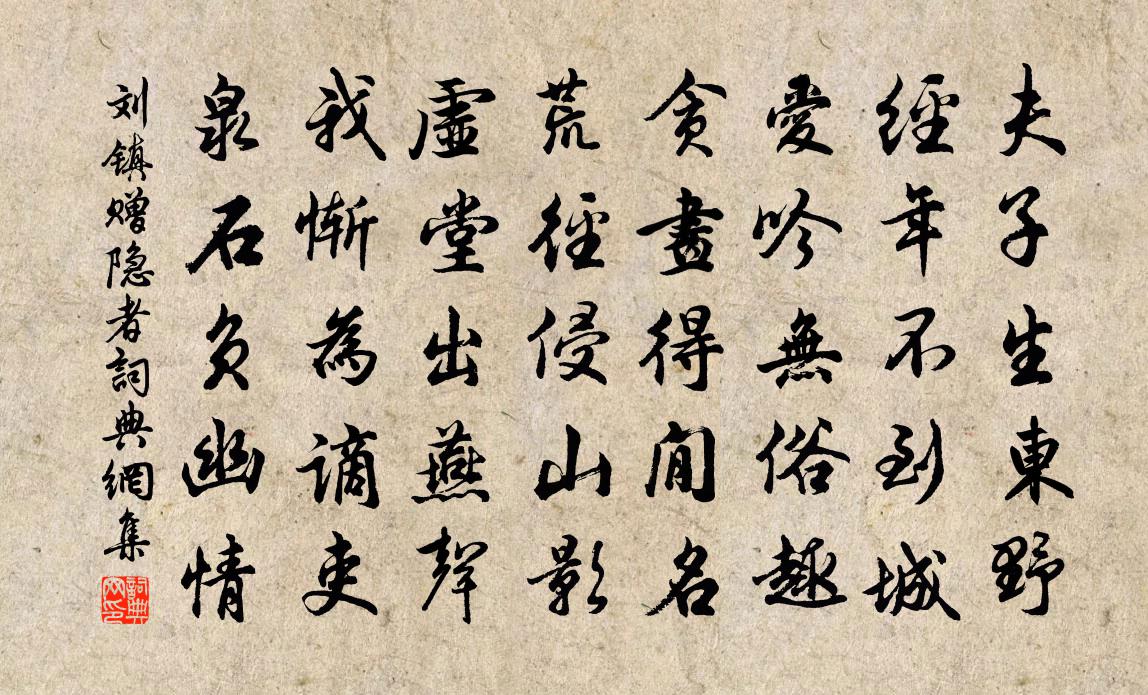 夫子生東野
經年不到城
愛吟無俗趣
貪畫得閒名
荒徑侵山影
虛堂出燕聲
我慚為謫吏
泉石負幽情
刘镇赠隐者詞典網集
詞典网印